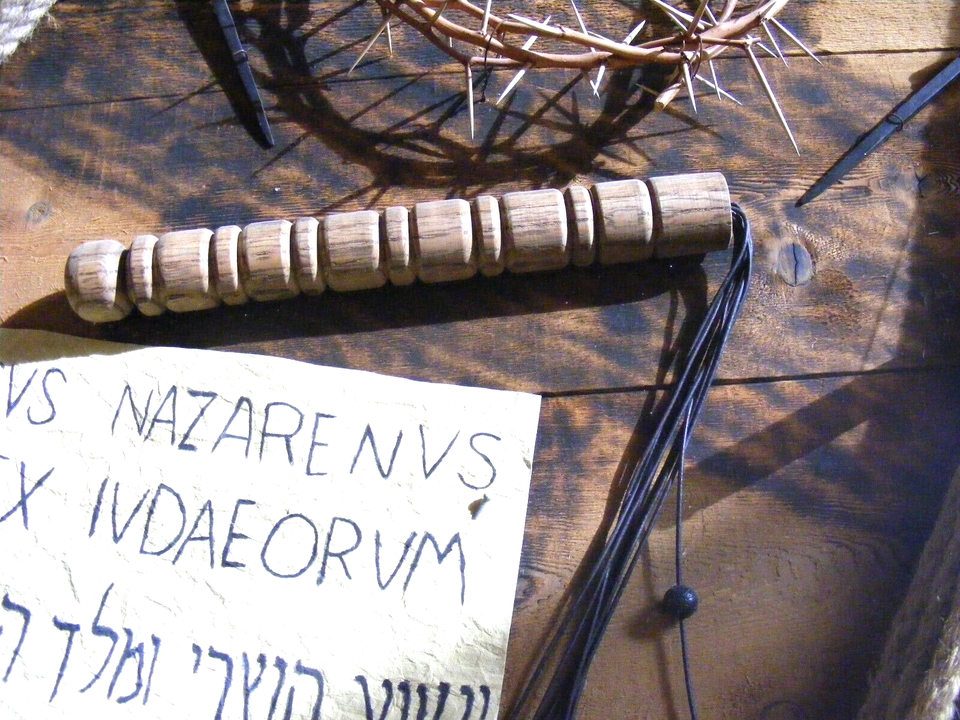 VS NAZARENVS
EX IVDAEORVM
ישוע הנצרי ומלך ה